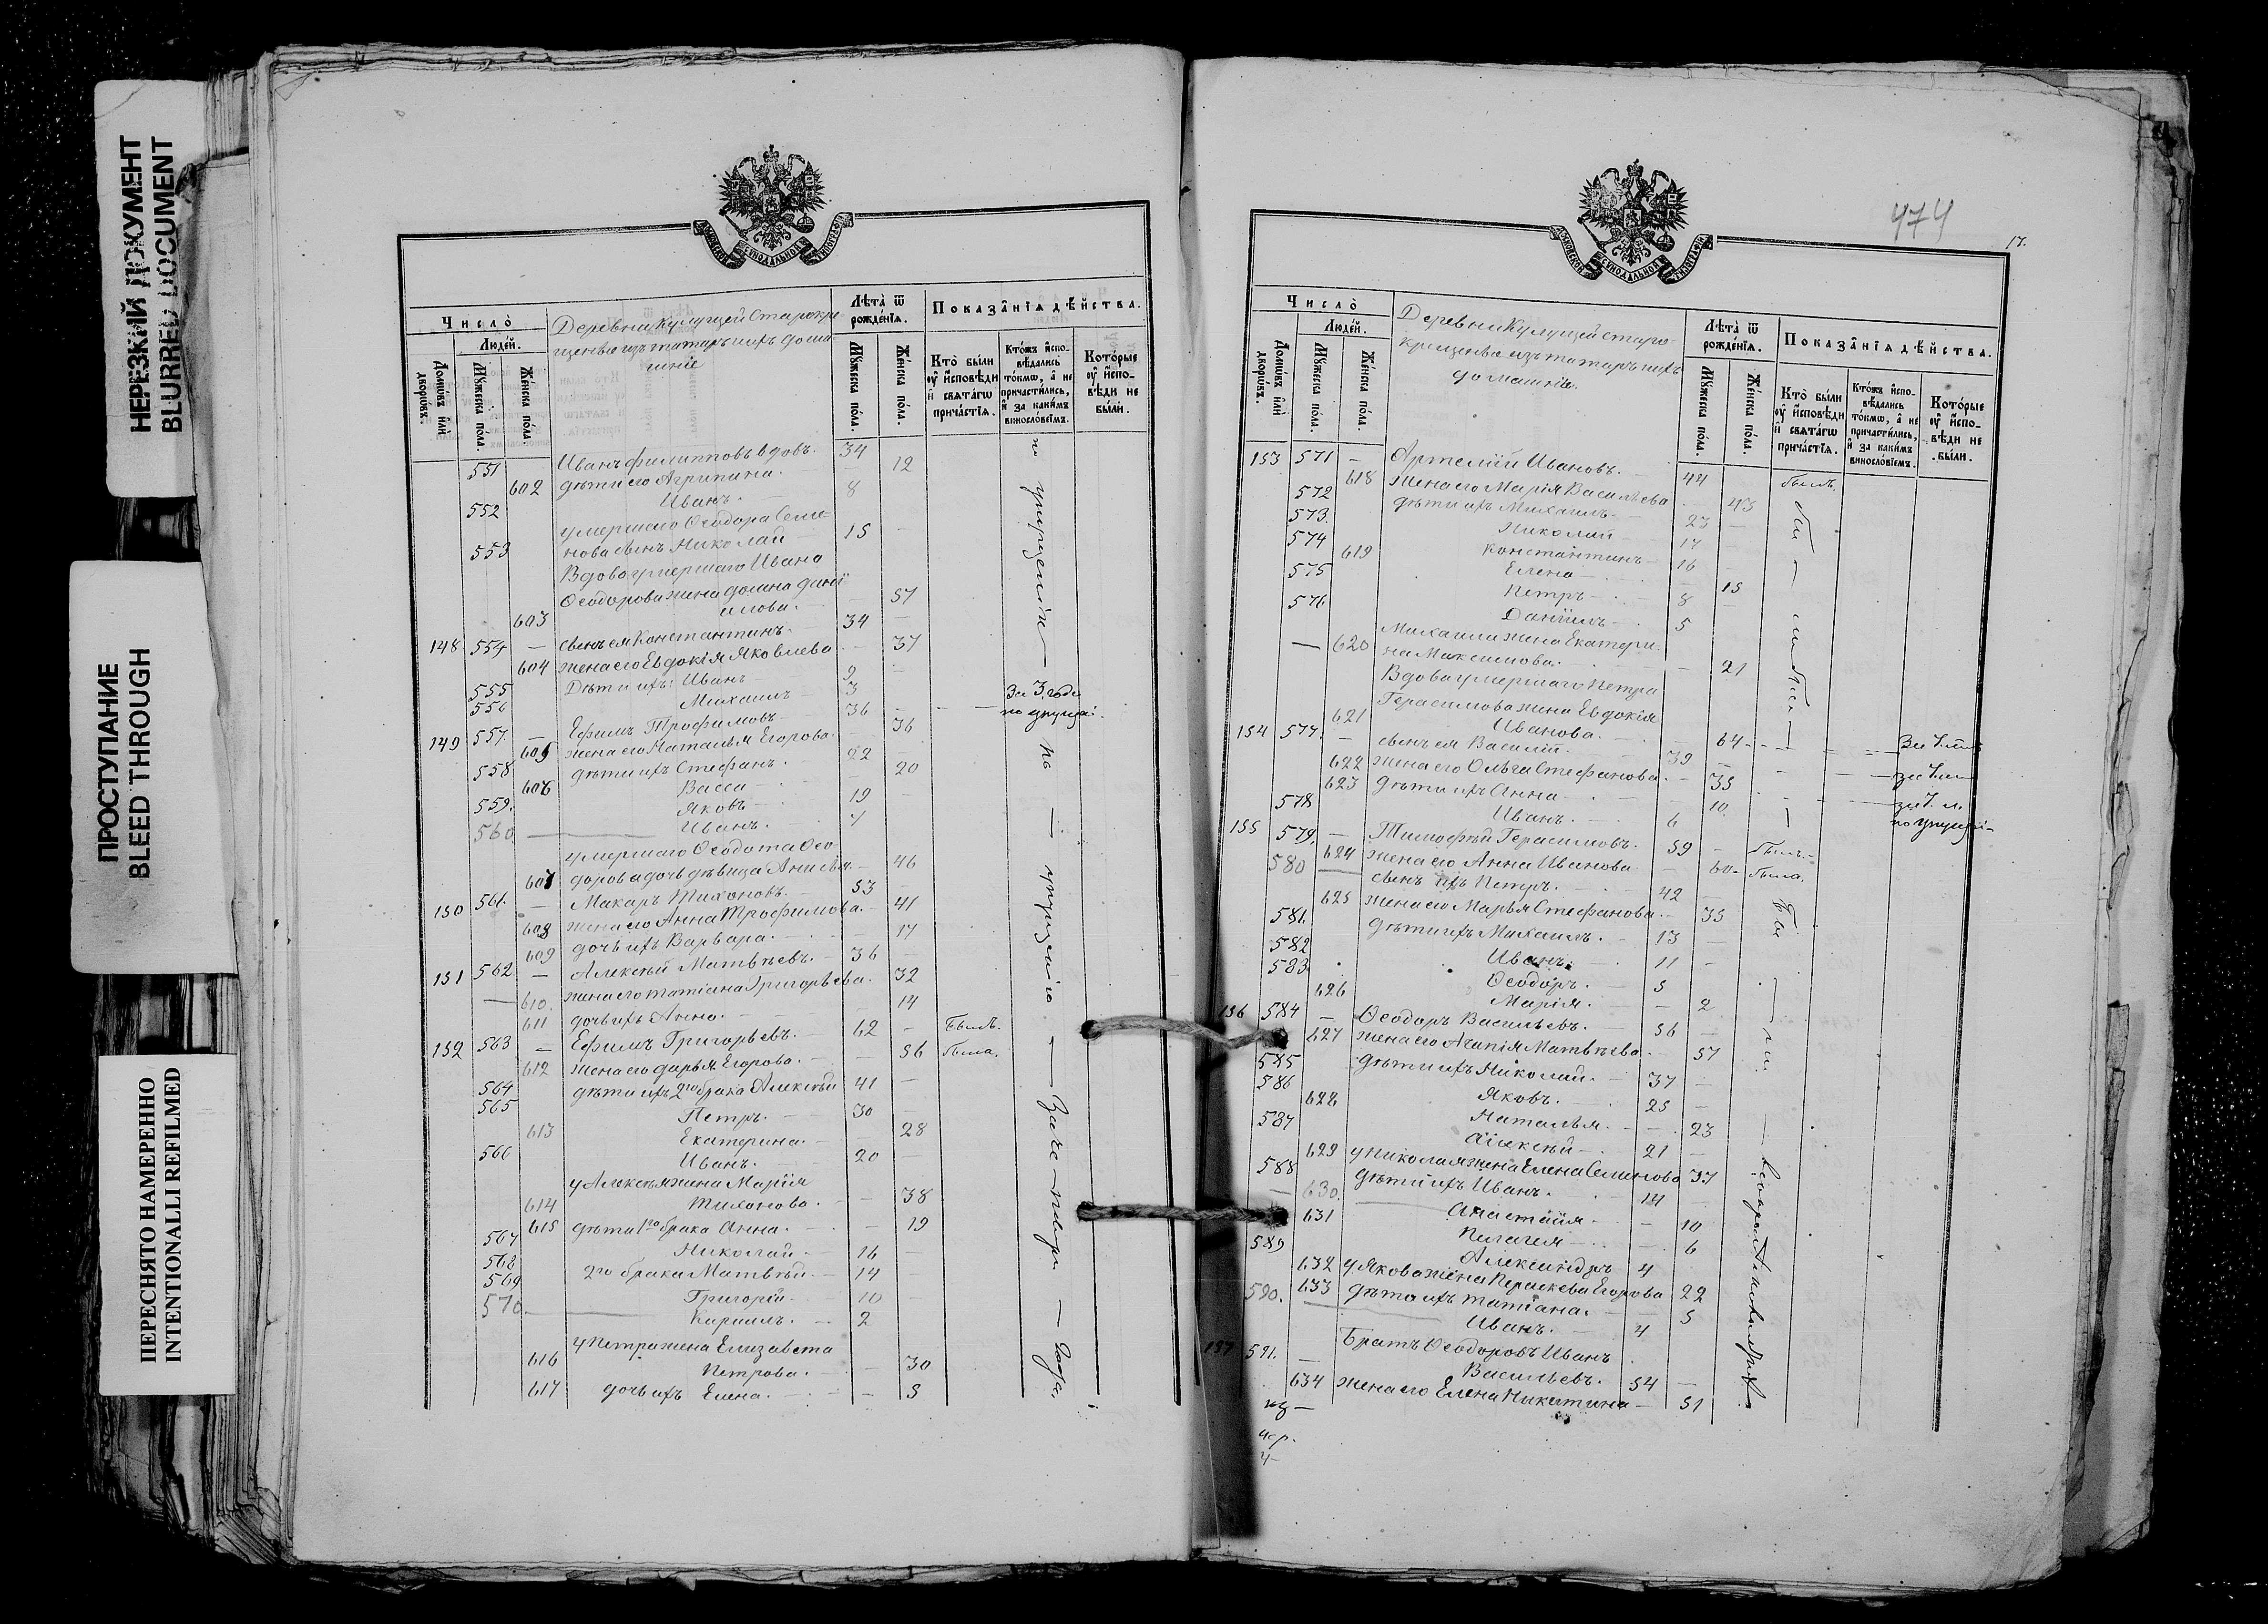 НЕРЕЗКИЙ ДОКУМЕНТ
BLURRED DOCUMENT
ПРОСТУПАНИЕ
BLEED THROUGH
ПЕРЕСНЯТО НАМЕРЕННО
INTENTIONALLI REFILMED
Число̀
Людей.
Домѡвъ илѝ дворѡвъ.
Мꙋжеска пола.
Женска пола.
Деревни Кулущей Старокре-
щеные изъ татаръ и ихъ дома
шніе
Лѣта ѿ рожденїѧ.
Мꙋжеска пола.
Женска пола.
Показанїѧ дѣйства.
Кто были ᲂу исповѣди и свѧтагѡ причастїѧ.
Ктожъ исповѣдались токмѡ, а не причастились, и за какимъ винословїемъ.
Которые ᲂу исповѣди не были.
551 Иванъ Филипповъ вдовъ. 34
602 дѣти его Агрипина. 12
552 Иванъ. 8
умершаго Ѳеодора Семе-
553 нова сынъ Николай 15
Вдова умершаго Ивана
Ѳеодорова жена Домна Дани
603 илова. 57
148 554 — сынъ ея Константинъ. 34
604 жена его Евдокія Яковлева 37
555 Дѣти ихъ: Иванъ 9
556 Михаилъ 3 За 3. годъ
149 557. — Ефимъ Трофимовъ 36
605 жена его Наталья Егорова 36
558 дѣти ихъ Стефанъ. 22
606 Васса 20
559. Яковъ 19
560 Иванъ. 7
умершаго Ѳеодота Ѳео-
607 дорова дочь дѣвица Анисья 46
150 561. — Макаръ Тихоновъ. 53
608 жена его Анна Трофимова. 41
609 дочь ихъ Варвара. 17
151 562 — Алексѣй Матвѣевъ. 36
610. жена его Татіана Григорьева. 32
611 дочь ихъ Анна. 14
152 563 — Ефимъ Григорьевъ. 62 — Былъ.
612 жена его Дарья Егорова. — 56 была.
564 дѣти ихъ 2го брака Алексѣй 41
565 Петръ. 30
613 Екатерина. 28
566 Иванъ. 20
у Алексѣя жена Марія
614 Тихонова. 38
615 дѣти 1го брака Анна. 19
567 Николай. 16
568 2го брака Матвѣй. 14
569 Григорій. 10
570 Кириллъ. 2
у Петра жена Елизавета
616 Петрова. 30
617 дочь ихъ Елена. 5
474
17.
Число̀
Людей.
Домѡвъ илѝ дворѡвъ.
Мꙋжеска пола.
Женска пола.
Деревни Кулущей старо-
крещеные изъ татаръ и ихъ
домашніе.
Лѣта ѿ рожденїѧ.
Мꙋжеска пола.
Женска пола.
Показанїѧ дѣйства.
Кто были ᲂу исповѣди и свѧтагѡ причастїѧ.
Ктожъ исповѣдались токмѡ, а не причастились, и за какимъ винословїемъ.
Которые ᲂу исповѣди не были.
153 571 — Артемій Ивановъ. 44 былъ.
618 жена его Марія Васильева 43
572 дѣти ихъ Михаилъ 23
573. Николай 17
574 Константинъ 16
619 Елена 15
575 Петръ 8
576 Даніилъ 5
Михаила жена Екатери-
— 620 на Максимова. 21
Вдова умершаго Петра
Герасимова жена Евдокія
621 Иванова. 64
154 577. — сынъ ея Василій. 39
622 жена его Ольга Стефанова. 35
623 дѣти ихъ Анна 10.
578 Иванъ. 6
155 579. — Тимофѣй Герасимовъ. 59 былъ.
624 жена его Анна Иванова 60 была.
580 сынъ ихъ Петръ. 42
625 жена его Марья Стефанова. 35
581. дѣти ихъ Михаилъ. 13
582 Иванъ. 11
583 Ѳеодоръ. 5
626 Марія. 2
156 584 — Ѳеодоръ Васильевъ. 56
627 жена его Агапія Матвѣева 57
585 дѣти ихъ Николай. 37
586 Яковъ. 25
628 Наталья. 23
587 Алексѣй 21
629 у Николая жена Елена Семенова 37
588 дѣти ихъ Иванъ. 14
630. Анастасія 10
631 Пелагея 6
589 Александръ 4
632 у Якова жена Параскева Егорова 22
633 дѣти ихъ Татіана. 5
590. Иванъ. 4
Братъ Ѳеодоровъ Иванъ
157 591. — Васильевъ. 54
634 жена его Елена Никитина 51